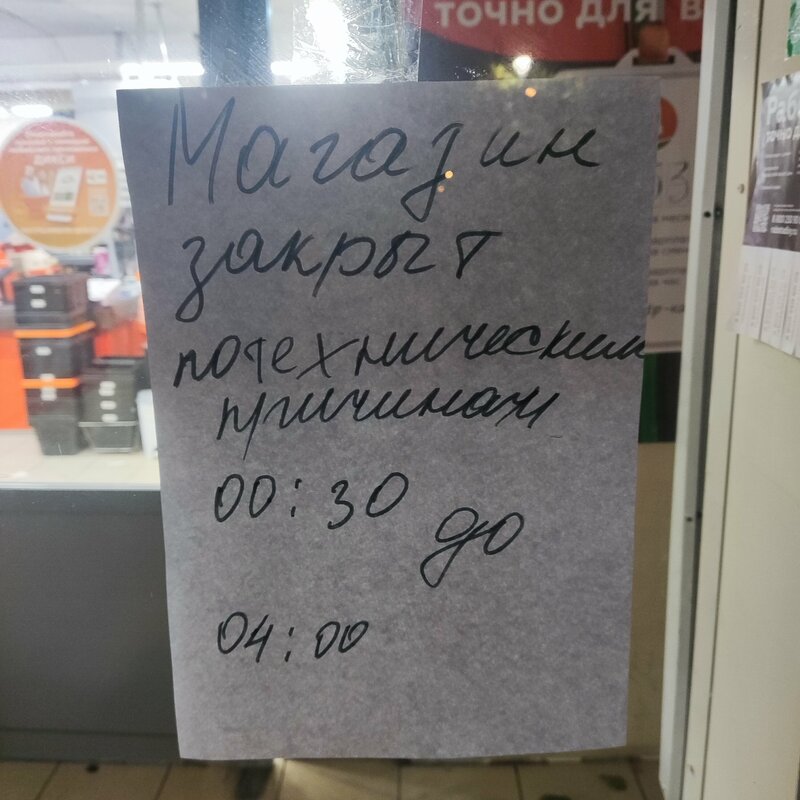 точно для в
Магазин
закрыт
по техническим
причинам
00:30
до
04:00
ДИКСИ
Раб
точно д